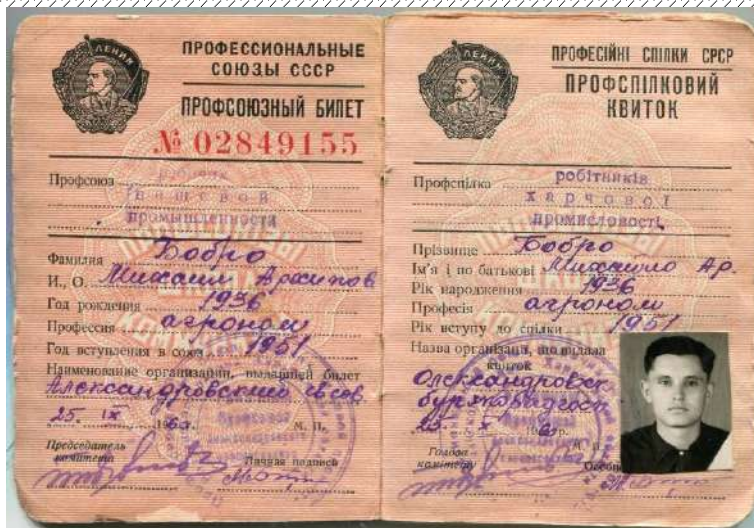 ЛЕНИН
ПРОФЕССИОНАЛЬНЫЕ
СОЮЗЫ СССР
ПРОФСОЮЗНЫЙ БИЛЕТ
№ 02849155
Профсоюз рабочих
пищевой
промышленности
Фамилия Бобро
И., О. Михаил Архипов
Год рождения 1936
Профессия агроном
Год вступления в союз 1951
Наименование организации, выдавшей билет
25. IX 196 г. М. П.
Председатель
комитета
Личная подпись
ЛЕНИН
ПРОФЕСІЙНІ СПІЛКИ СРСР
ПРОФСПІЛКОВИЙ
КВИТОК
Профспілка робітників
харчової
промисловості
Прізвище Бобро
Ім'я і по батькові Михайло Ар.
Рік народження 1936
Професія агроном
Рік вступу до спілки 1951
Назва організації, що видала
квиток
25. IX р.
М. П.
Голова
комітету